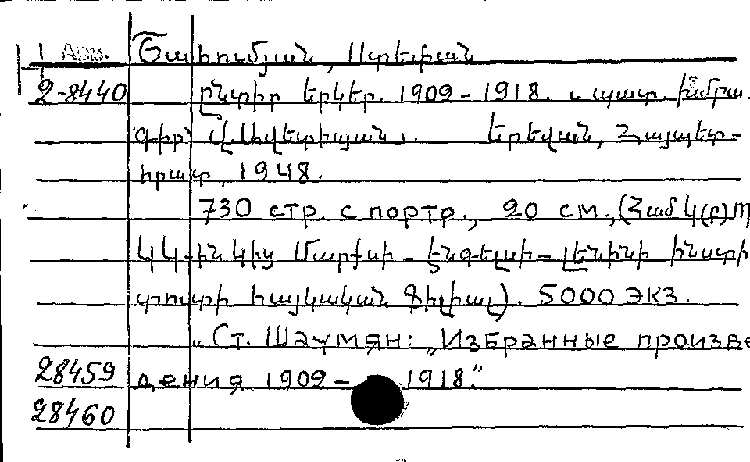 Арм. Շահումյան, Ստեփան
2-8440 Ընտիր երկեր. 1909-1918. պատ. խմբա.
գիր՝ Երևան, Հայպետ-
հրատ, 1948.
730 стр. с портр., 20 см., (Համ Կ(բ)Պ
ԿԿ-ին կից Մարքսի-Էնգելսի-Լենինի ինստի
տուտի հայկական ֆիլիալ). 5000 экз.
„Ст. Шаумян: „Избранные произве
28459 дения 1909- 1918."
28460